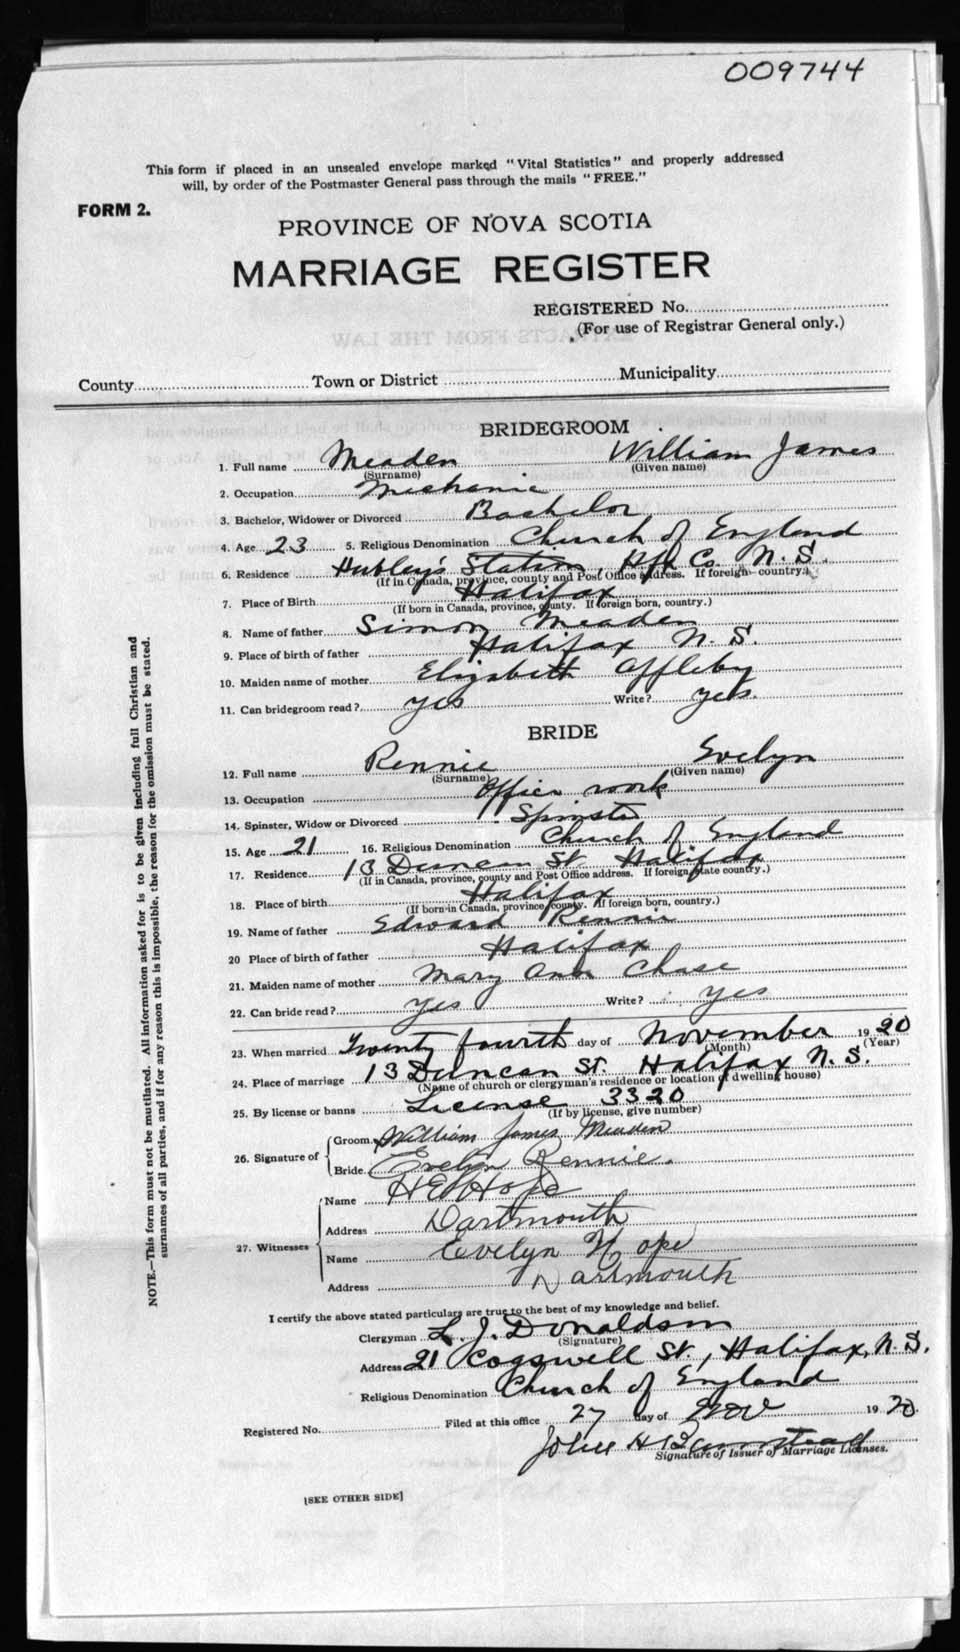 009744
This form if placed in an unsealed envelope marked "Vital Statistics" and properly addressed
will, by order of the Postmaster General pass through the mails "FREE."
FORM 2.
PROVINCE OF NOVA SCOTIA
MARRIAGE REGISTER
REGISTERED No.
(For use of Registrar General only.)
County Town or District Municipality
BRIDEGROOM
1. Full name Meaden William James
(Surname) (Given name)
2. Occupation Mechanic
3. Bachelor, Widower or Divorced Bachelor
4. Age 23 5. Religious Denomination Church of England
6. Residence Hubley's Station, Hfx Co. N. S.
(If in Canada, province, county and Post Office address. If foreign country.)
7. Place of Birth Halifax
(If born in Canada, province, county. If foreign born, country.)
8. Name of father Simon Meaden
9. Place of birth of father Halifax N. S.
10. Maiden name of mother Elizabeth Appleby
11. Can bridegroom read? yes Write? yes.
BRIDE
12. Full name Rennie Evelyn
(Surname) (Given name)
13. Occupation Office work
14. Spinster, Widow or Divorced Spinster
15. Age 21 16. Religious Denomination Church of England
17. Residence 13 Duncan St. Halifax
(If in Canada, province, county and Post Office address. If foreign, state country.)
18. Place of birth Halifax
(If born in Canada, province, county. If foreign born, country.)
19. Name of father Edward Rennie
20 Place of birth of father Halifax
21. Maiden name of mother Mary Ann Chase
22. Can bride read? yes Write? yes
23. When married Twenty fourth day of November 1920
(Month) (Year)
24. Place of marriage 13 Duncan St. Halifax N. S.
(Name of church or clergyman's residence or location of dwelling house)
25. By license or banns License 3320
(If by license, give number)
26. Signature of Groom William James Meaden
Bride Evelyn Rennie.
27. Witnesses Name H E Hope
Address Dartmouth
Name Evelyn Hope
Address Dartmouth
I certify the above stated particulars are true to the best of my knowledge and belief.
Clergyman L. J. Donaldson
(Signature)
Address 21 Cogswell St., Halifax, N. S.
Religious Denomination Church of England
Registered No. Filed at this office 27 day of Nov 1920.
John H Barnstead
Signature of Issuer of Marriage Licenses.
[SEE OTHER SIDE]
NOTE.—This form must not be mutilated. All information asked for is to be given including full Christian and
surnames of all parties, and if for any reason this is impossible, the reason for the omission must be stated.